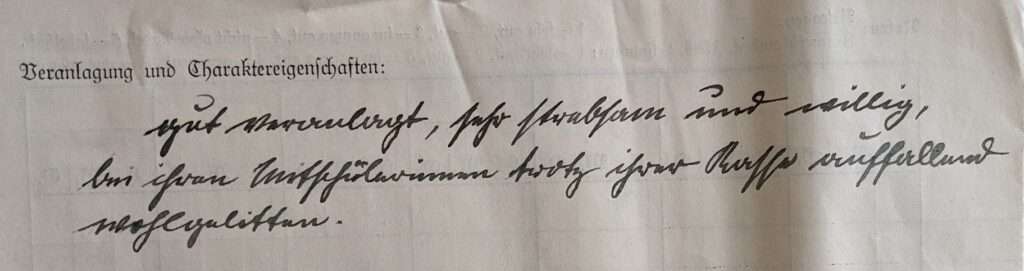 Veranlagung und Charaktereigenschaften:
gut veranlagt, sehr strebsam und willig,
bei ihren Mitschülerinnen trotz ihrer Rasse auffallend
wohlgelitten.